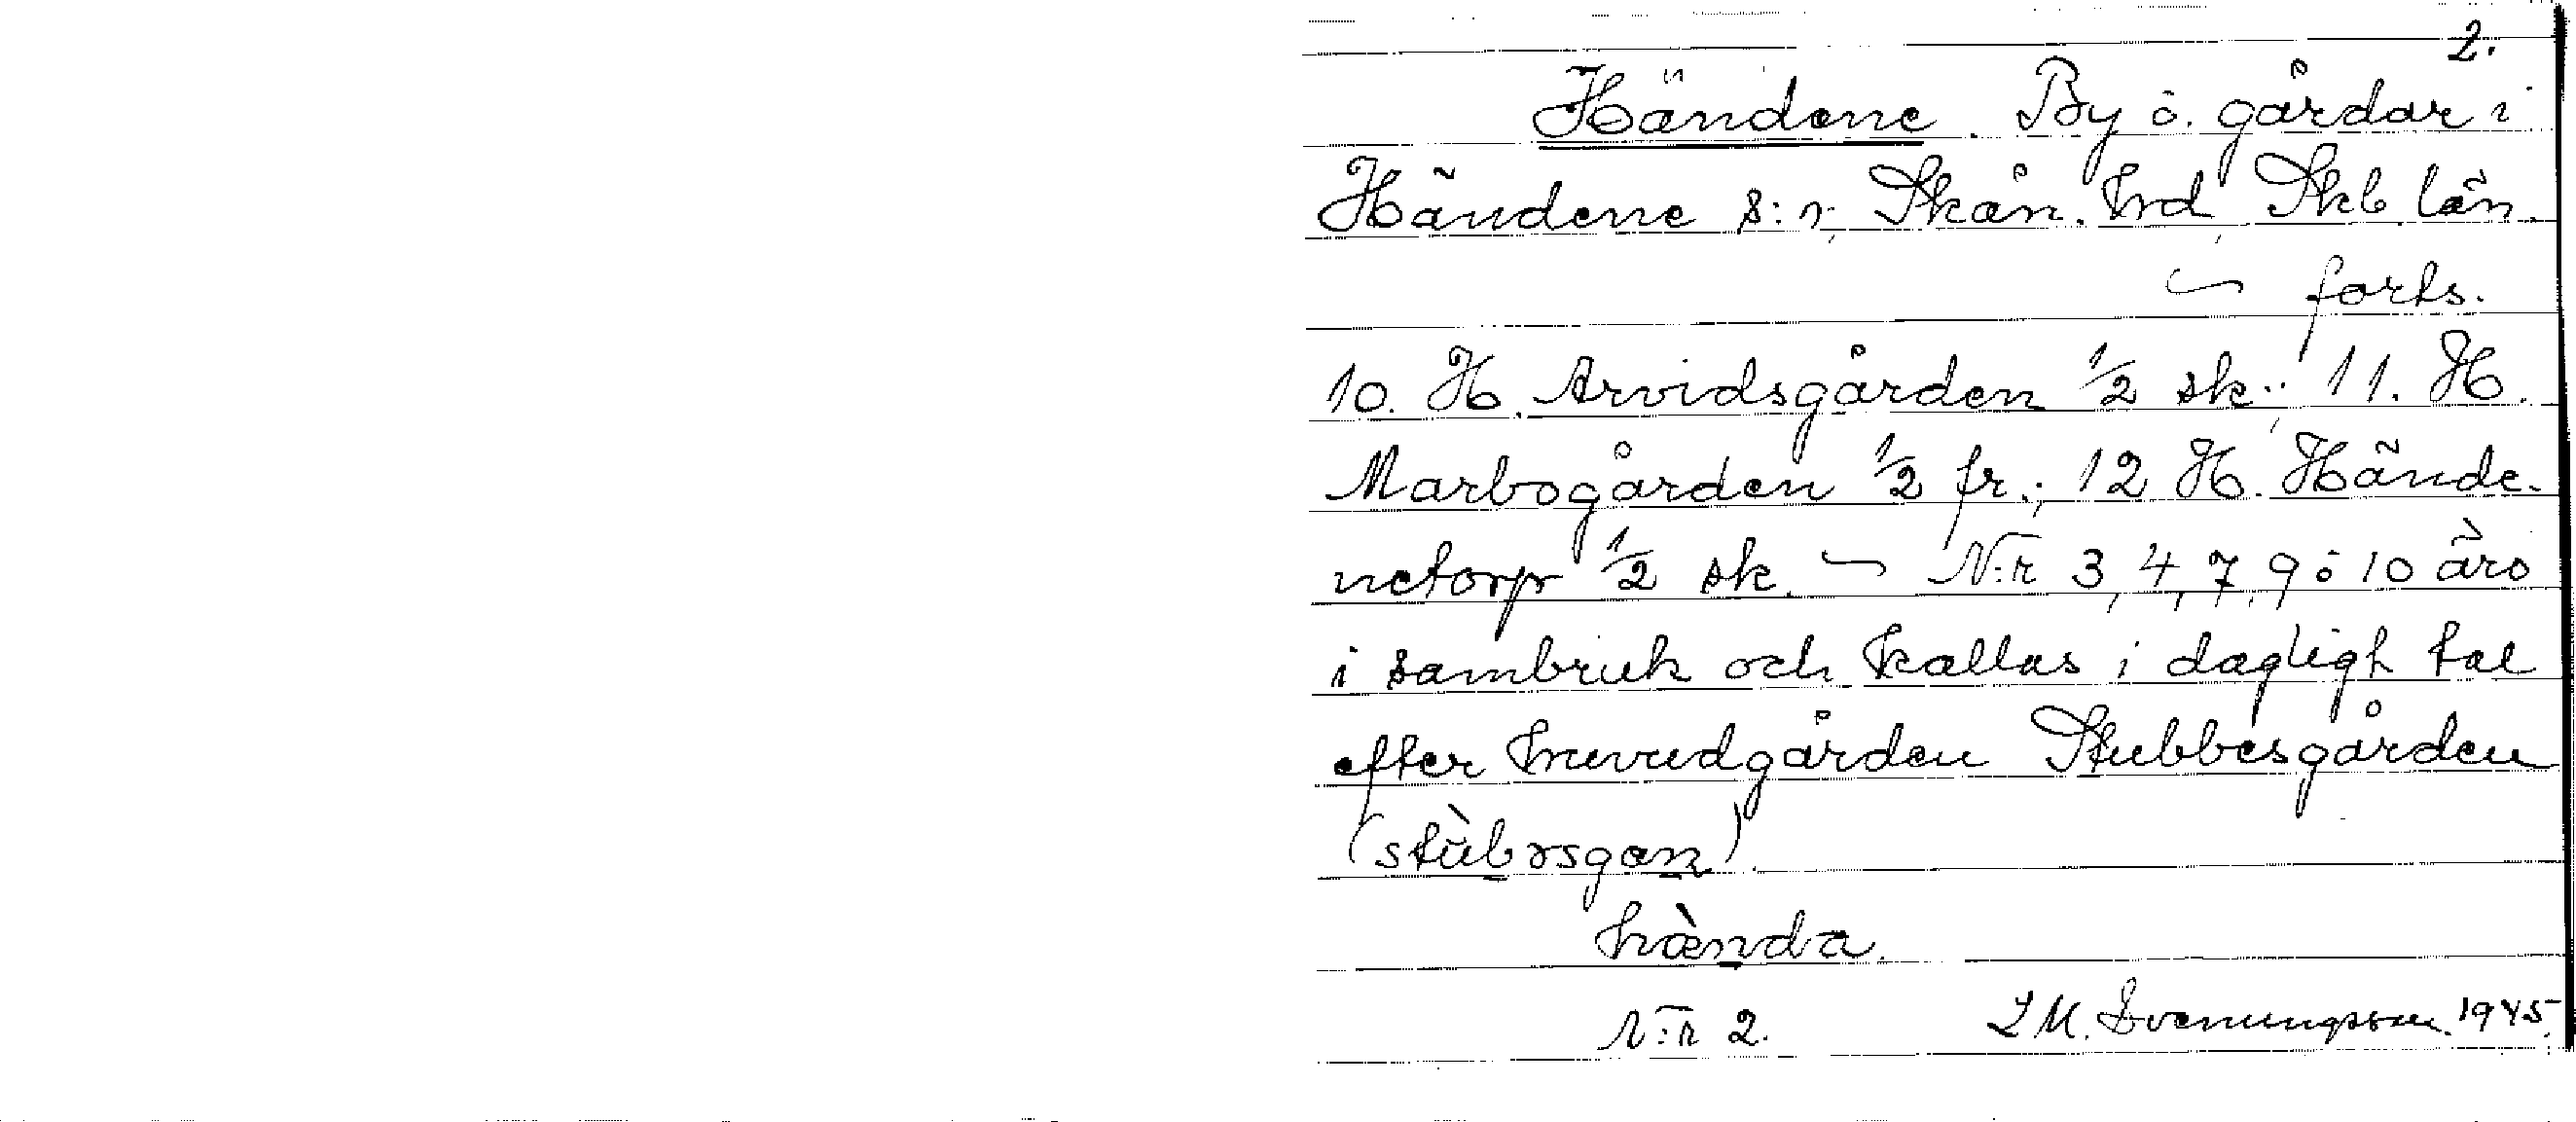 2.
Händene. By o. gårdar i
Händene s:n, Skån. hrd, Skb. län.
~ forts.
10. H. Arvidsgården 1/2 sk.; 11. H.
Marbogården 1/2 fr.; 12 H. Hände-
netorp 1/2 sk. ~ N:r 3, 4, 7, 9 o 10 äro
i sambruk och kallas i dagligt tal
efter huvudgården Stubbesgården
(stùbǝsgan).
hæ̀nda.
N:r 2. L M. Svenungsson. 1945.